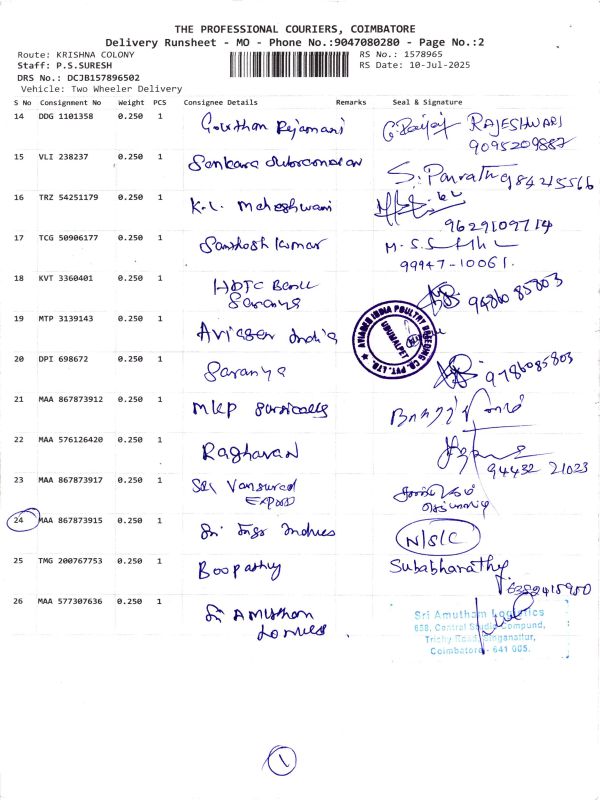 THE PROFESSIONAL COURIERS, COIMBATORE
Delivery Runsheet - MO - Phone No.:9047080280 - Page No.:2
Route: KRISHNA COLONY RS No.: 1578965
Staff: P.S.SURESH RS Date: 10-Jul-2025
DRS No.: DCJB157896502
Vehicle: Two Wheeler Delivery
S No Consignment No Weight PCS Consignee Details Remarks Seal & Signature
14 DDG 1101358 0.250 1 Gowthan Rejamani RAJESHWARI
9095209887
15 VLI 238237 0.250 1 Sankara
16 TRZ 54251179 0.250 1 K.L. Maheshwani
9629109714
17 TCG 50906177 0.250 1 Santhosh Kumar
99947-10061.
18 KVT 3360401 0.250 1 HDFC Bank
Saranya 9486085803
19 MTP 3139143 0.250 1 Aviagen India
AVIAGEN INDIA POULTRY BREEDING CO. PVT. LTD.
UDUMALPET
20 DPI 698672 0.250 1 Saranya 9786085803
21 MAA 867873912 0.250 1 MKP Surgicals
22 MAA 576126420 0.250 1 Raghavan
94432 21023
23 MAA 867873917 0.250 1 Sri
24 MAA 867873915 0.250 1 Sri N/S/C
25 TMG 200767753 0.250 1 Boopathy Subabharathy
6382415950
26 MAA 577307636 0.250 1 Sri Amutham
Sri Amutham Logistics
658, Central Studio Compund,
Trichy Road, Singanallur,
Coimbatore - 641 005.
1